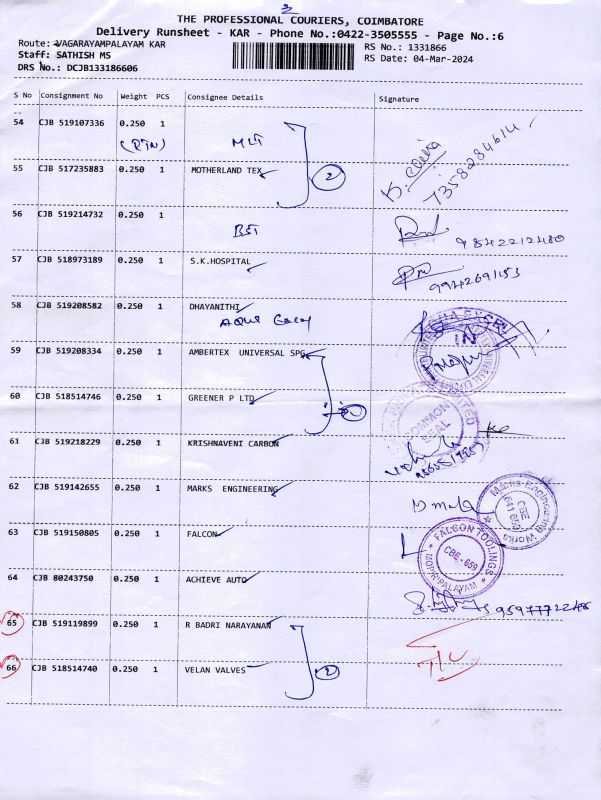 2
THE PROFESSIONAL COURIERS, COIMBATORE
Delivery Runsheet - KAR - Phone No.:0422-3505555 - Page No.:6
Route: VAGARAYAMPALAYAM KAR
RS No.: 1331866
Staff: SATHISH MS
RS Date: 04-Mar-2024
DRS No.: DCJB133186606
S No Consignment No Weight PCS Consignee Details Signature
54 CJB 519107336 0.250 1
(RTN) MLT
55 CJB 517235883 0.250 1 MOTHERLAND TEX
2
7358284614
56 CJB 519214732 0.250 1
BST
9842212480
57 CJB 518973189 0.250 1 S.K.HOSPITAL
9942691153
58 CJB 519208582 0.250 1 DHAYANITHI
59 CJB 519208334 0.250 1 AMBERTEX UNIVERSAL SPG
60 CJB 518514746 0.250 1 GREENER P LTD
COMMON SEAL
61 CJB 519218229 0.250 1 KRISHNAVENI CARBON
62 CJB 519142655 0.250 1 MARKS ENGINEERING
Marks Engineering Works
CBE
63 CJB 519150805 0.250 1 FALCON
FALCON TOOLINGS
CBE-659
MOPIRIPALAYAM
64 CJB 80243750 0.250 1 ACHIEVE AUTO
65 CJB 519119899 0.250 1 R BADRI NARAYANAN
66 CJB 518514740 0.250 1 VELAN VALVES
2